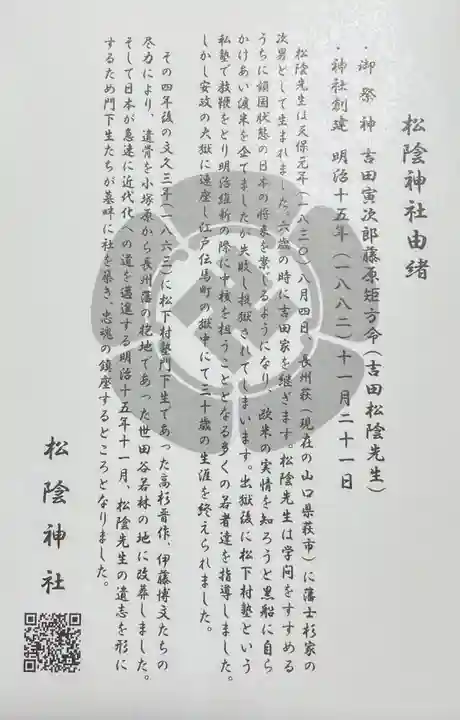 松陰神社由緒
・御祭神 吉田寅次郎藤原矩方命(吉田松陰先生)
・神社創建 明治十五年(一八八二)十一月二十一日
松陰先生は天保元年(一八三〇)八月四日、長州萩(現在の山口県萩市)に藩士杉家の
次男として生まれました。六歳の時に吉田家を継ぎます。松陰先生は学問をすすめる
うちに鎖国状態の日本の将来を案じるようになり、欧米の実情を知ろうと黒船に自ら
かけあい渡米を企てましたが失敗し投獄されてしまいます。出獄後に松下村塾という
私塾で教鞭をとり明治維新の際に中核を担うこととなる多くの若者達を指導しました。
しかし安政の大獄に連座し江戸伝馬町の獄中にて三十歳の生涯を終えられました。
その四年後の文久三年(一八六三)に松下村塾門下生であった高杉晋作、伊藤博文たちの
尽力により、遺骨を小塚原から長州藩の抱地であった世田谷若林の地に改葬しました。
そして日本が急速に近代化への道を邁進する明治十五年十一月、松陰先生の遺志を形に
するため門下生たちが墓畔に社を築き、忠魂の鎮座するところとなりました。
松陰神社